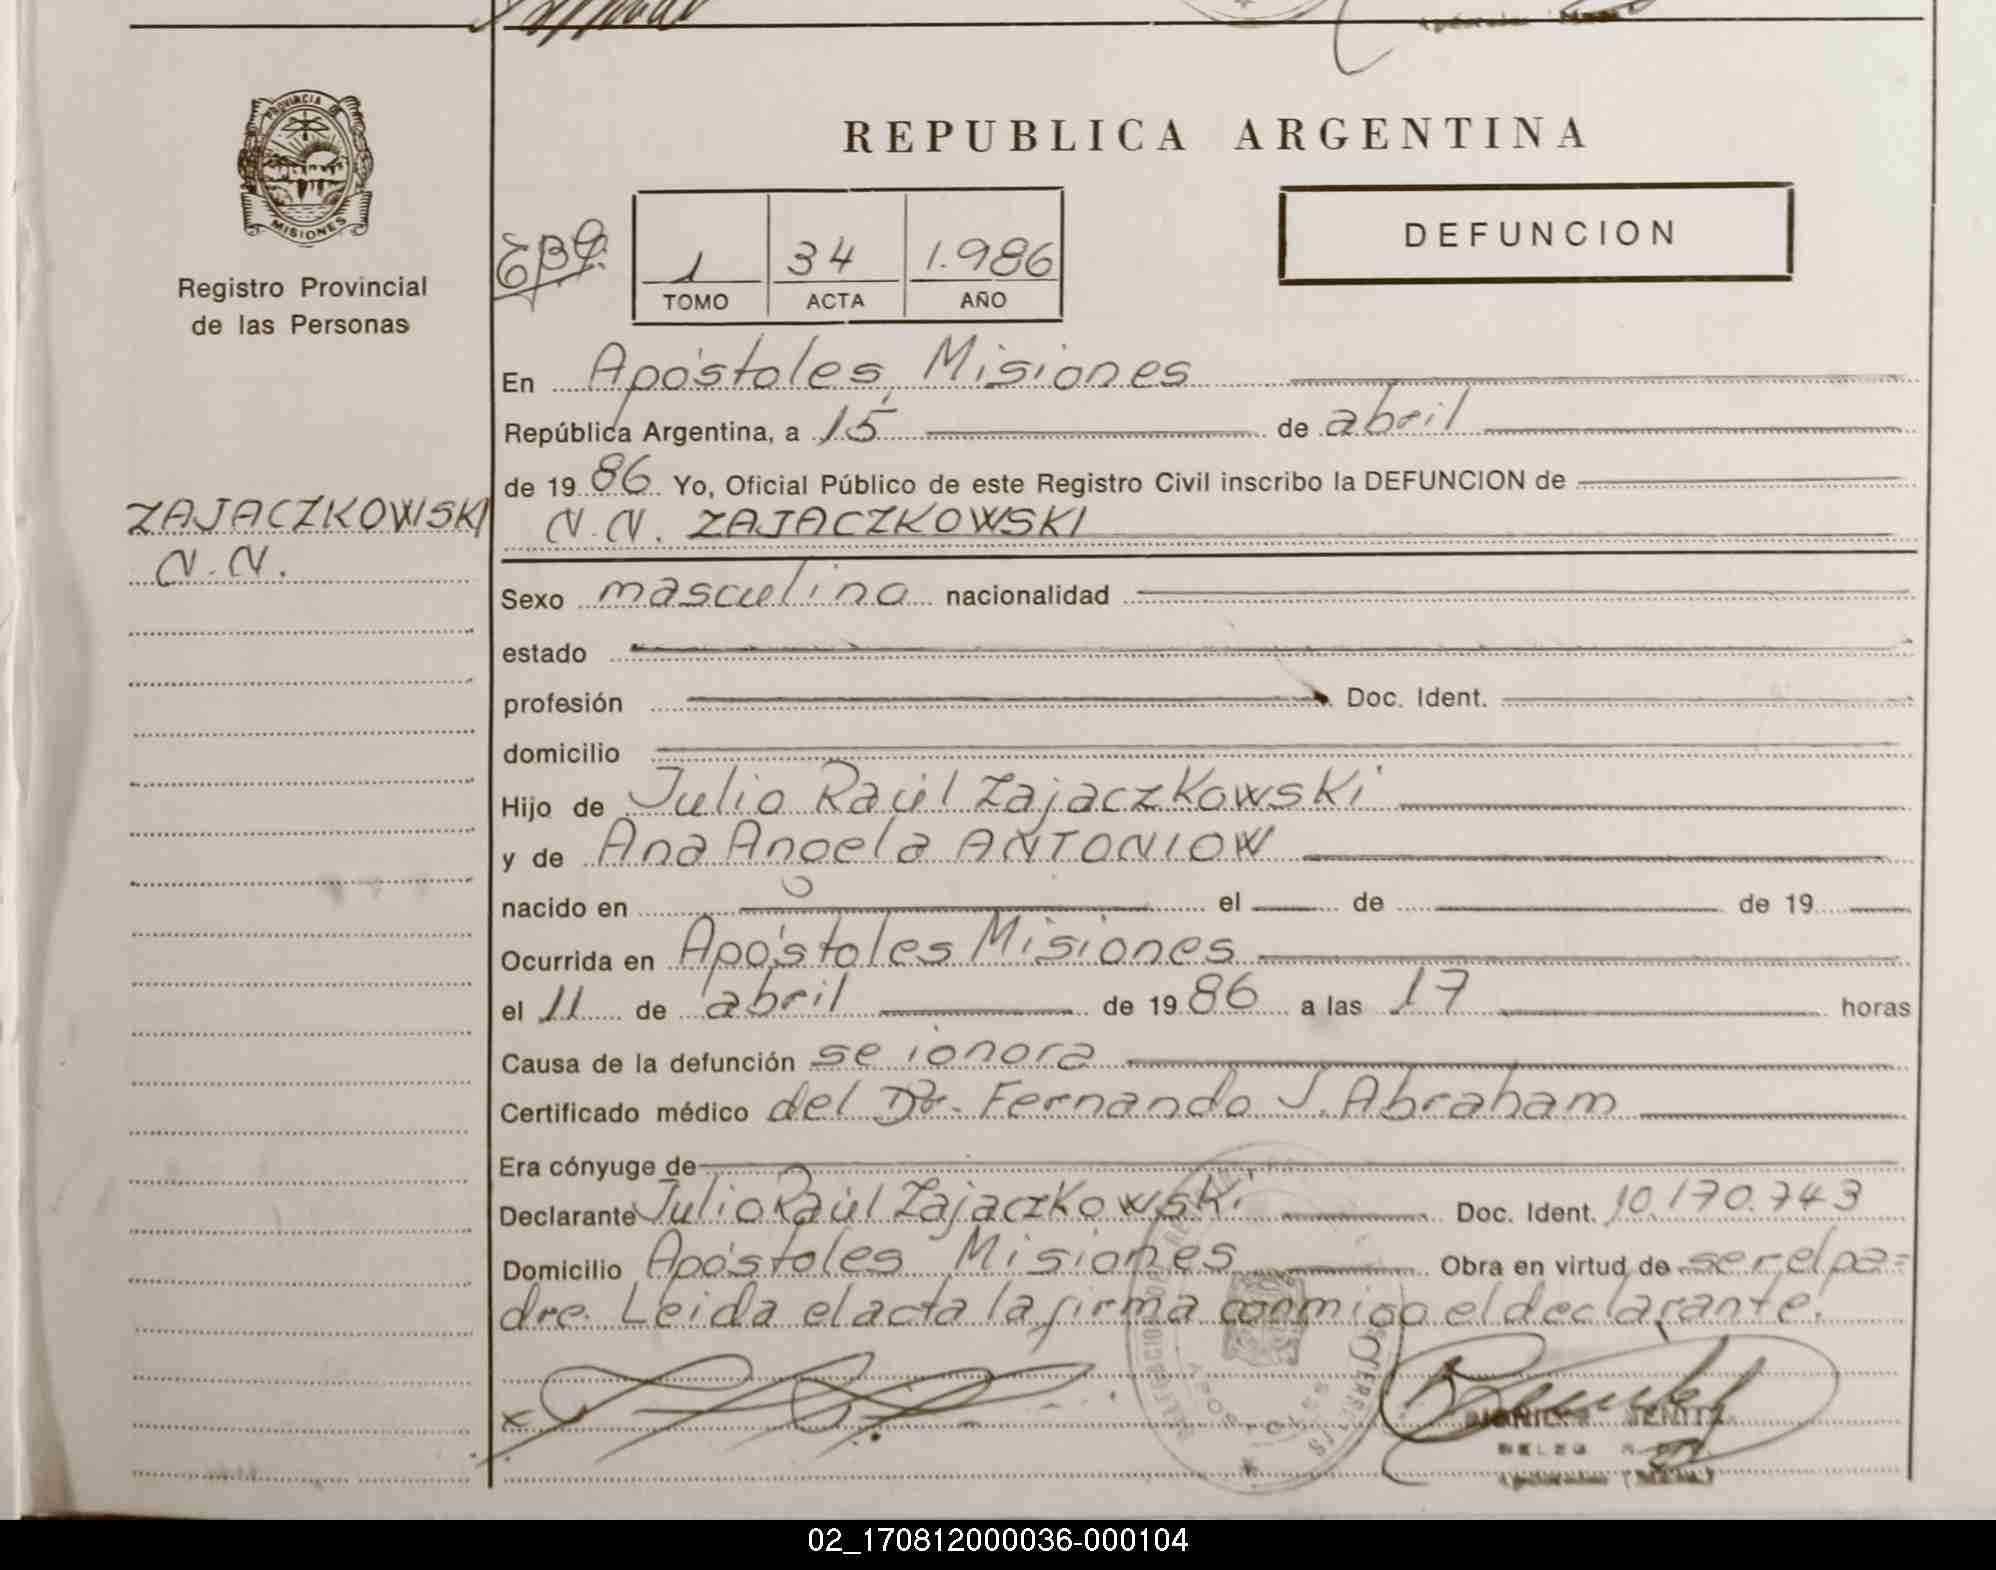 REPUBLICA ARGENTINA
PROVINCIA DE
MISIONES
Registro Provincial
de las Personas
1 34 1.986
TOMO ACTA AÑO
DEFUNCION
En Apóstoles, Misiones
República Argentina, a 15 de abril
de 1986 Yo, Oficial Público de este Registro Civil inscribo la DEFUNCION de
ZAJACZKOWSKI
N.N.
N.N. ZAJACZKOWSKI
Sexo masculino nacionalidad
estado
profesión Doc. Ident.
domicilio
Hijo de Julio Raúl Zajaczkowski
y de Ana Angela ANTONIOW
nacido en el de de 19
Ocurrida en Apóstoles Misiones
el 11 de abril de 1986 a las 17 horas
Causa de la defunción se ignora
Certificado médico del Dr. Fernando J. Abraham
Era cónyuge de
Declarante Julio Raúl Zajaczkowski Doc. Ident. 10.170.743
Domicilio Apóstoles Misiones Obra en virtud de ser el pa=
dre. Leida el acta la firma conmigo el declarante.
APOSTOLES
02_170812000036-000104